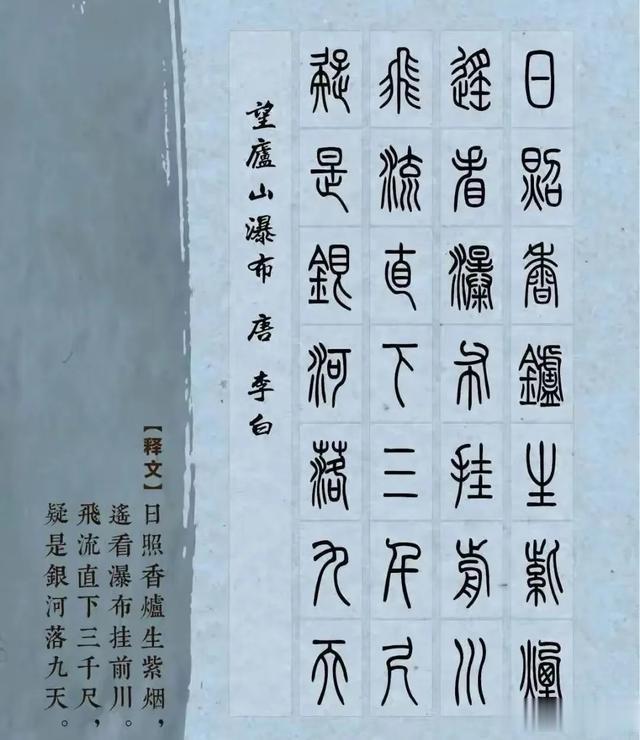 日照香鑪生紫煙
遙看瀑布挂前川
飛流直下三千尺
疑是銀河落九天
望廬山瀑布 唐 李白
【释文】日照香爐生紫烟，
遙看瀑布挂前川。
飛流直下三千尺，
疑是銀河落九天。